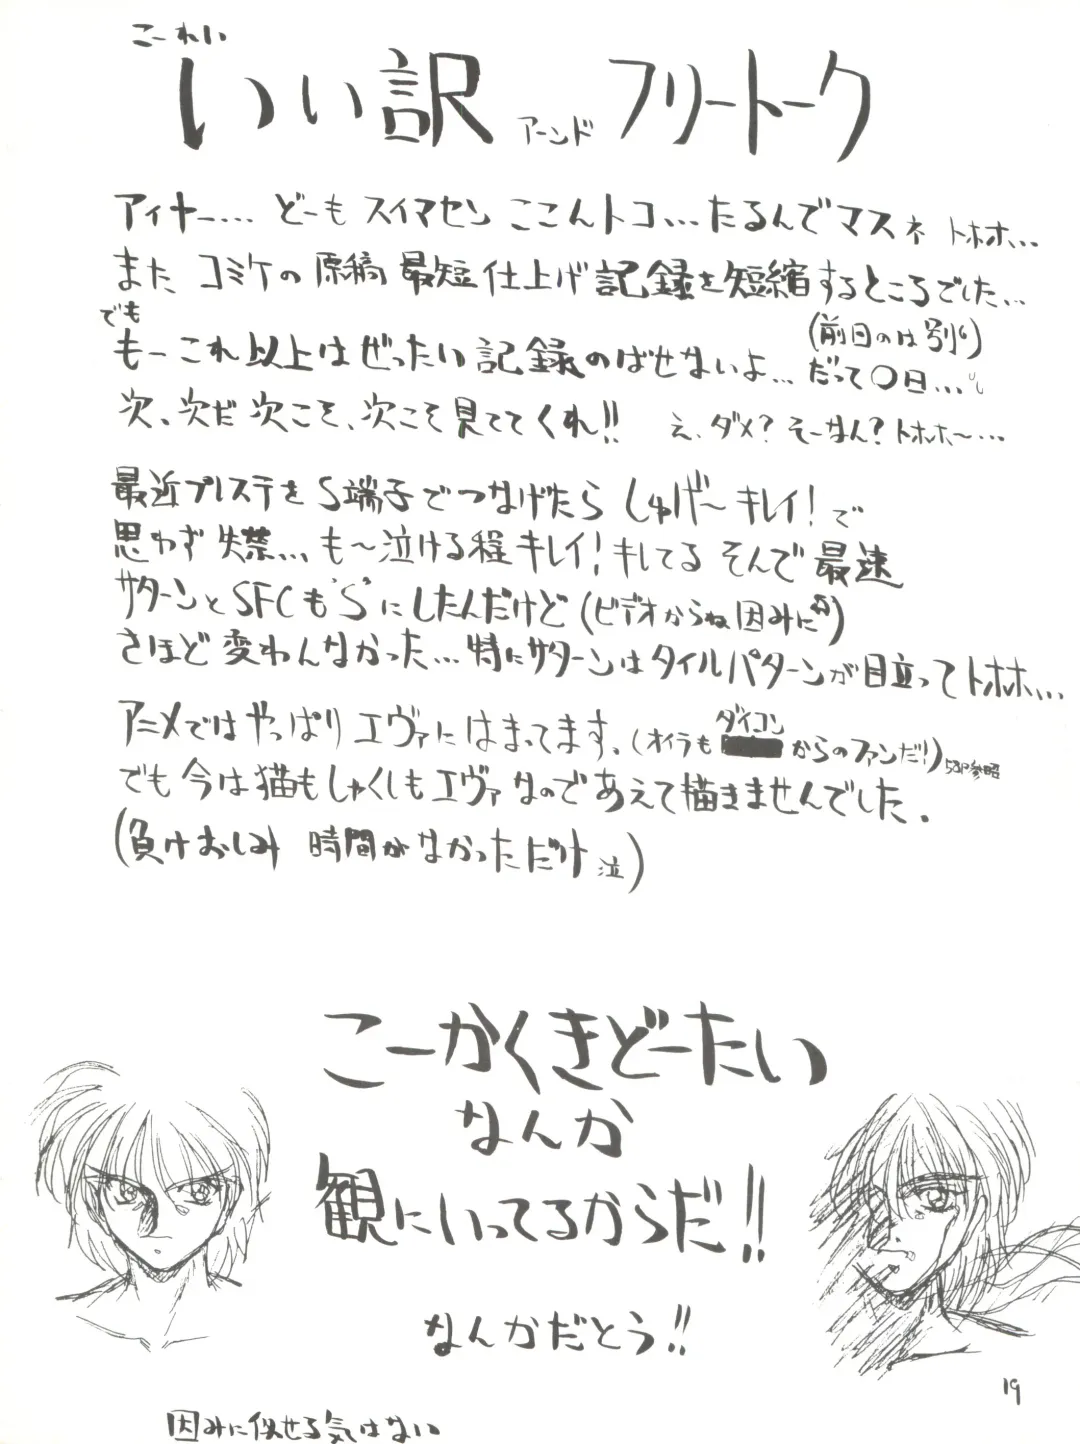 こーれい
いい訳 アーンド フリートーク
アィヤー…. どーも スイマセン ここんトコ… たるんでマスネ トホホ…
また コミケの原稿 最短仕上げ 記録を短縮するところでした…
でも
(前日のは別)
もーこれ以上はぜったい記録のばせないよ… だって〇日…
次、次だ 次こそ、次こそ見ててくれ!! え、ダメ? そーなん? トホホ〜…
最近プレステをS端子でつなげたら しゅげ〜 キレイ! で
思わず 失禁… も〜泣ける程 キレイ! キしてる そんで 最速
サターンとSFCも"S"にしたんだけど (ビデオからね因みに)
さほど 変わんなかった… 特にサターンは タイルパターンが目立って トホホ…
アニメではやっぱり エヴァにはまってます。(オイラも ダイコン からのファンだ!) 53P参照
でも今は猫もしゃくしもエヴァなのであえて描きませんでした。
(負けおしみ 時間がなかっただけ 泣)
こーかくきどーたい
なんか
観にいってるからだ!!
なんかだとう!!
19
因みに似せる気はない